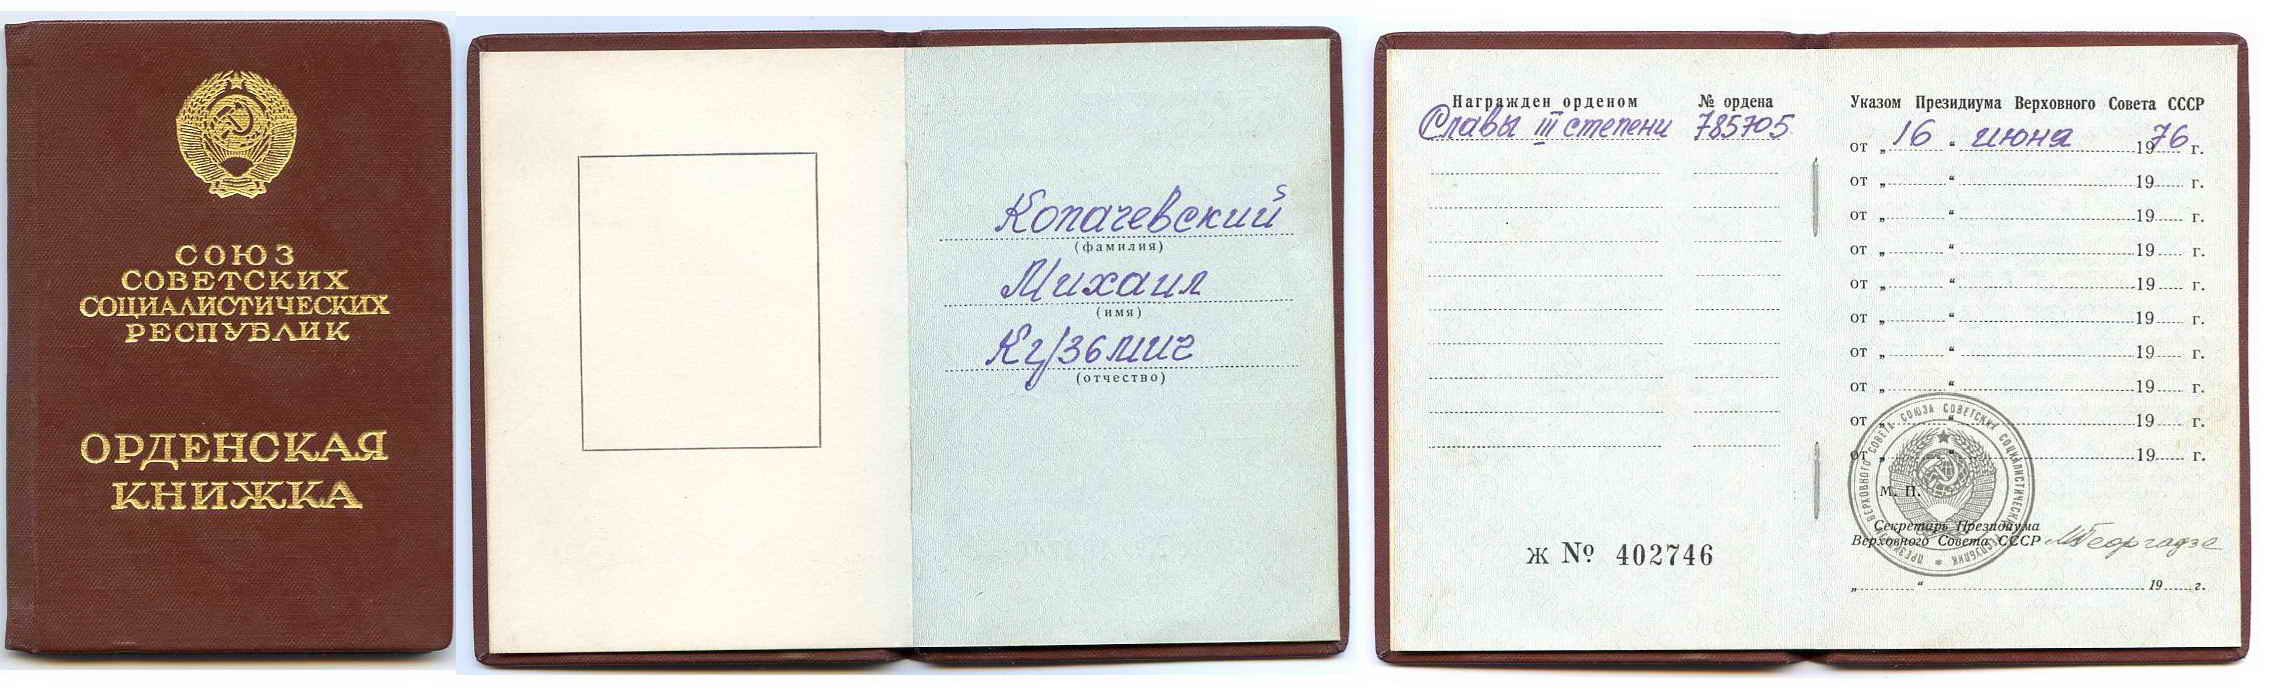 СОЮЗ
СОВЕТСКИХ
СОЦИАЛИСТИЧЕСКИХ
РЕСПУБЛИК
ОРДЕНСКАЯ
КНИЖКА
Копачевский
(фамилия)
Михаил
(имя)
Кузьмич
(отчество)
Награжден орденом № ордена
Славы III степени 785705
Ж № 402746
Указом Президиума Верховного Совета СССР
от „ 16 “ июня 1976 г.
от „ “ 19 г.
от „ “ 19 г.
от „ “ 19 г.
от „ “ 19 г.
от „ “ 19 г.
от „ “ 19 г.
от „ “ 19 г.
от „ “ 19 г.
от „ “ 19 г.
М. П.
Секретарь Президиума
Верховного Совета СССР МГеоргадзе
„ “ 19 г.
ПРЕЗИДИУМ ВЕРХОВНОГО СОВЕТА СОЮЗА СОВЕТСКИХ СОЦИАЛИСТИЧЕСКИХ РЕСПУБЛИК